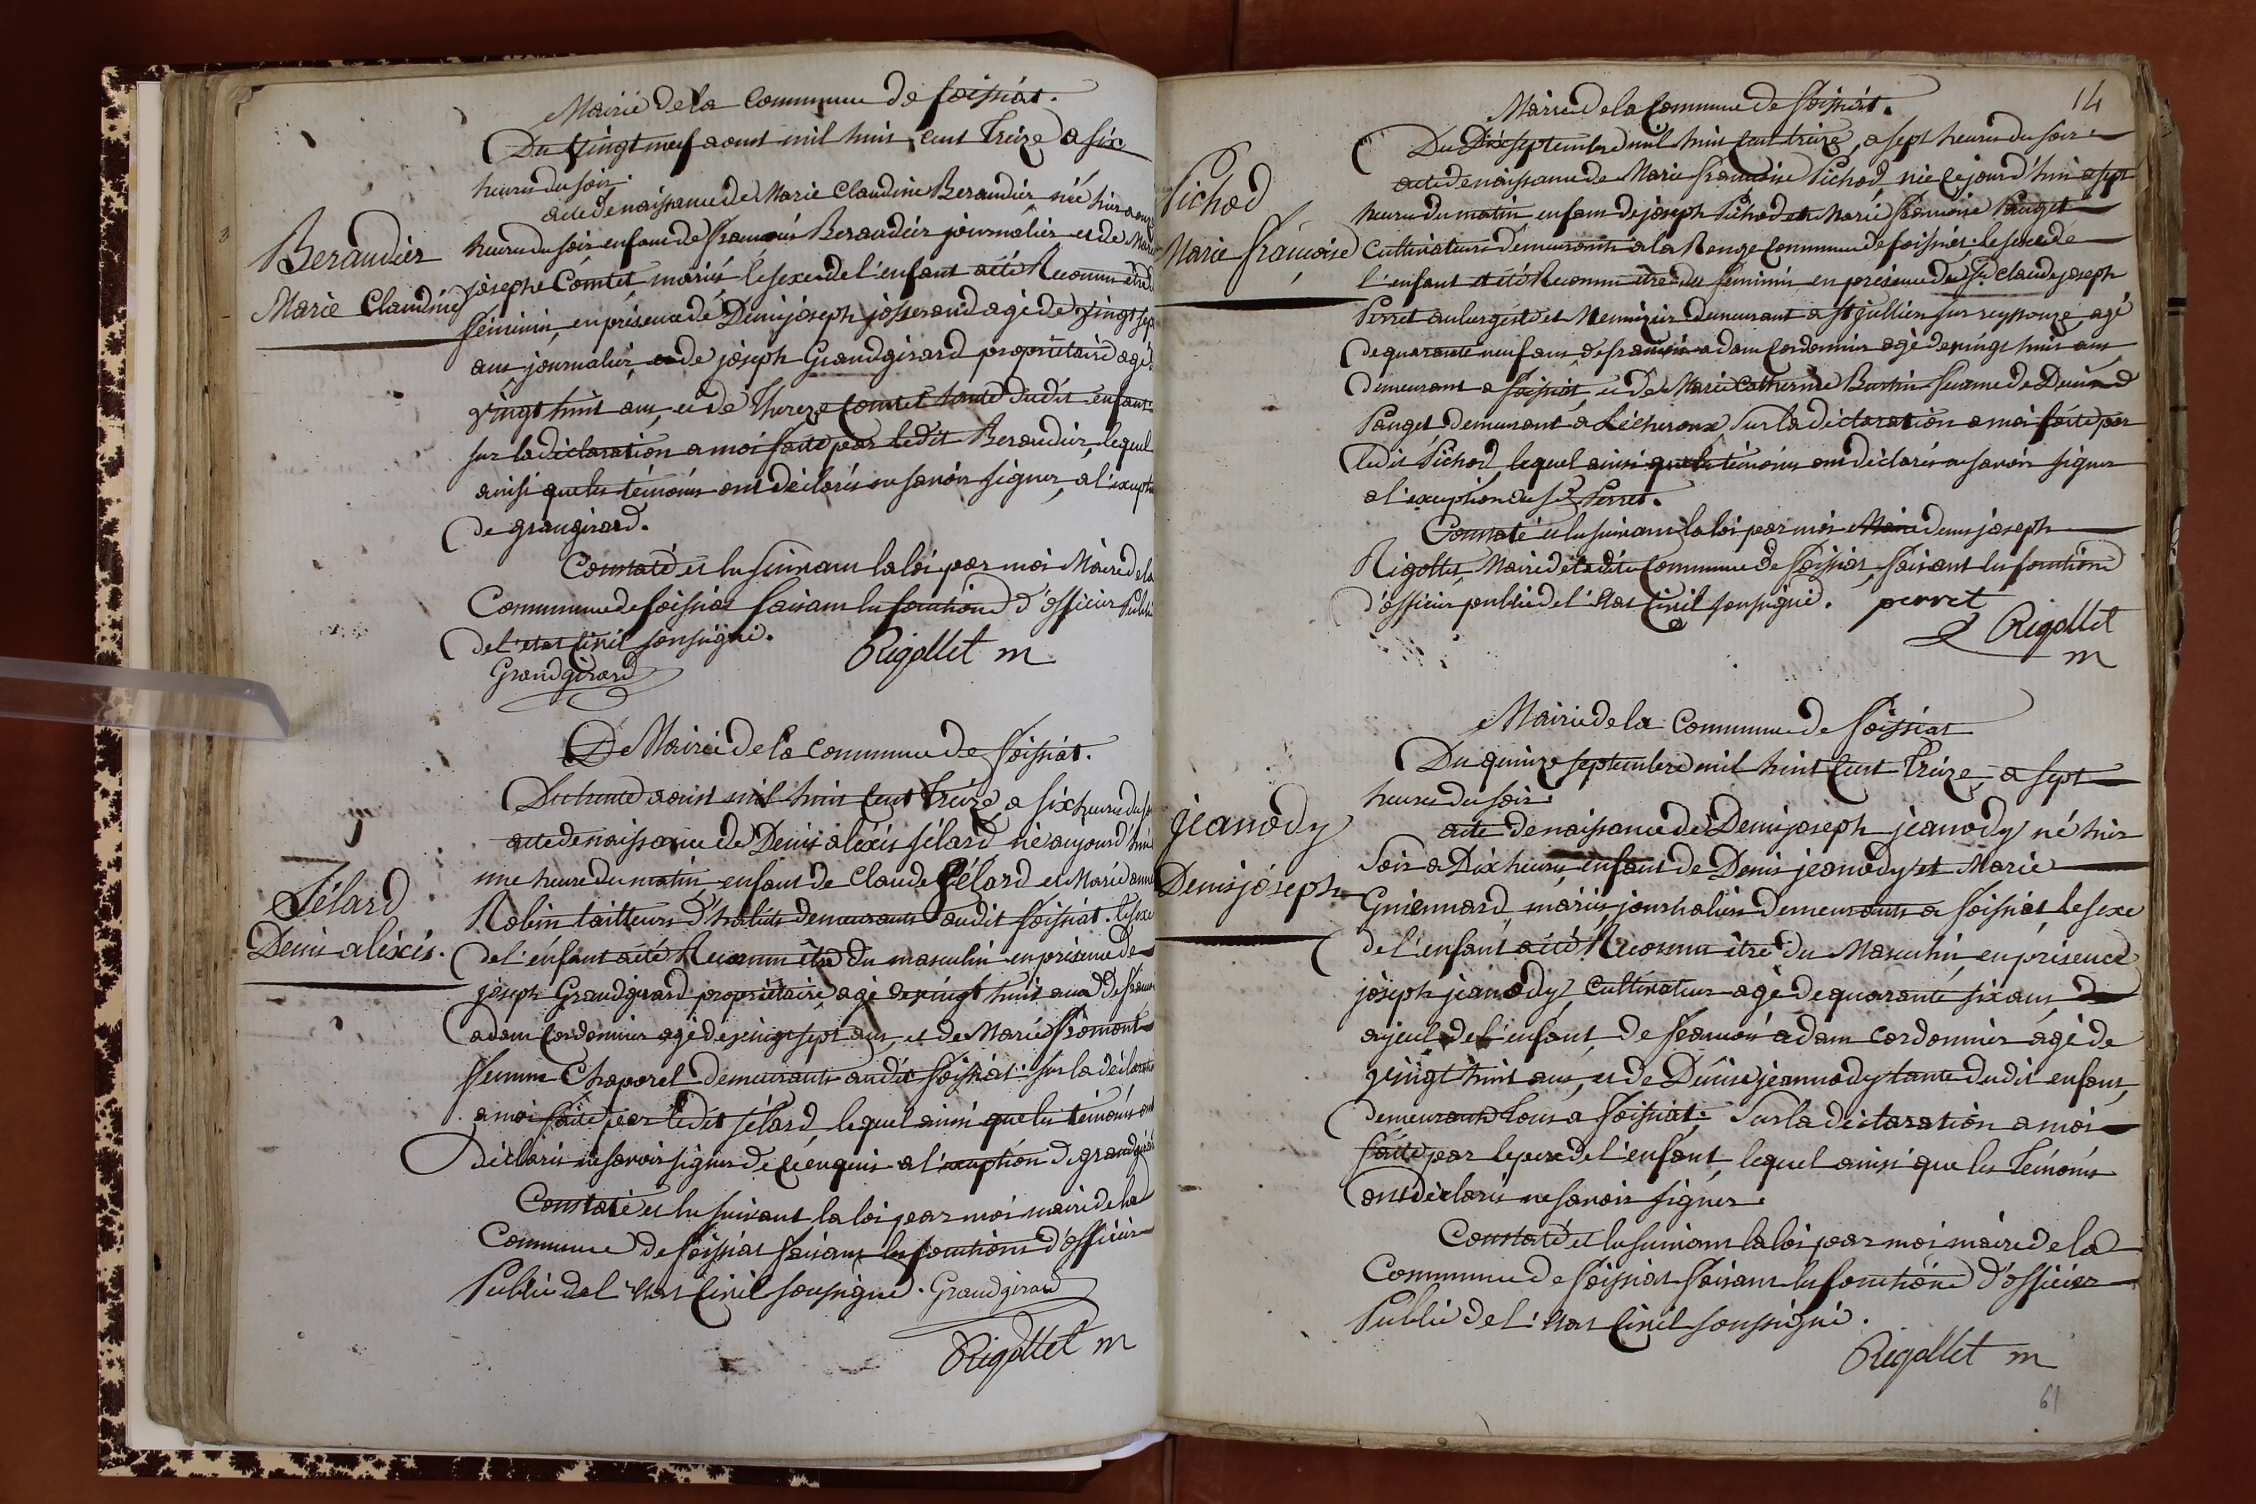 Mairie de la Commune de foissiat.
Du vingt neuf aout mil huit cent Treize a six
heures du soir.
acte de naissance de Marie Claudine Beraudier née hier a onze
Beraudier
Marie Claudine
heures du soir enfant de François Beraudier journalier et de Marie
josephe Comtet mariés le sexe de l'enfant a été Reconnu être du
féminin, en présence de Denis joseph josserand agé de vingt sept
ans journalier, et de joseph Grandgirard propriétaire agé de
vingt huit ans, et de Thereze Comtet tante dudit enfant
sur la déclaration a moi faite par ledit Beraudier, lequel
ainsi que les témoins ont déclarés ne savoir signer, a l'exception
de grangirard.
Constaté et lu suivant la loi par moi Maire de la
Commune de foissiat faisant les fonctions d'officier Public
de l'etat Civil soussigné.
Rigollet m
Grandgirard
De Mairie de la Commune de foissiat.
Du trente aoust mil huit Cent Treize, a six heures du soir
acte de naissance de Denis aléxis félard né aujourd'hui
une heure du matin, enfant de Claude félard et Marie anne
félard
Denis aléxis.
Robin tailleurs d'habits demeurants audit foissiat. le sexe
de l'énfant a été Reconnu être du masculin en présence de
joseph Grandgirard propriétaire agé de vingt huit ans de françois
adam Cordonnier agé de vingt sept ans, et de Marie Fromont
femme Chaparel demeurants audit foissiat. sur la déclaration
a moi faite par ledit félard, lequel ainsi que les témoins ont
déclarés ne savoir signer de ce enquis a l'exception de grandgirard
Constaté et lu suivant la loi par moi maire de la
Commune de foissiat faisant les fonctions d'officier
Public de l'etat Civil soussigné. Grandgirard
Rigollet m
14
Mairie de la Commune de foissiat.
Du Dix septembre mil huit Cent treize, a sept heures du soir
acte de naissance de Marie françoise Pichod née Ce jourd'hui a sept
Pichod
Marie françoise
heures du matin enfant de joseph Pichod et Marie françoise Pauget
Cultivateurs demeurants a la Rouge Commune de foissiat. le sexe de
l'enfant a été Reconnu être du féminin en présence du Sr. Claude joseph
Perret aubergiste et Menuisier demeurant a St jullien sur reyssouze, agé
de quarante neuf ans, de françois adam Cordonnier agé de vingt huit ans
demeurant a foissiat, et de Marie Catherine Burtin femme de Denis
Pauget demeurant a Lécheroux sur la déclaration a moi faite par
ledit Pichod, lequel ainsi que les témoins ont déclarés ne savoir signer
a l'exception du Sr. Perret.
Constaté et lu suivant la loi par moi Maire denis joseph
Rigollet, Maire de ladite Commune de foissiat, faisant les fonctions
d'officier public de l'etat Civil soussigné. perret
Rigollet
m
Mairie de la Commune de foissiat
Du quinze septembre mil huit Cent Treize, a sept
heures du soir.
acte de naissance de Denis joseph jeanody né hier
jeanody
Denis joseph
soir a Dix heures, enfant de Denis jeanody et Marie
Guiennard, mariés, journaliers demeurants a foissiat le sexe
de l'enfant a été Reconnu être du Masculin, en présence
joseph jeanody Cultivateur agé de quarante six ans,
ayeul de l'enfant, de françois adam cordonnier agé de
vingt huit ans, et de Dénise jeannody tante dudit enfant,
demeurants tous a foissiat. sur la déclaration a moi
faite par le pere de l'enfant, lequel ainsi que les Témoins
ont déclarés ne savoir signer.
Constaté et lu suivant la loi par moi maire de la
Commune de foissiat faisant les fonctions d'officier
Public de l'etat Civil soussigné.
Rigollet m
61